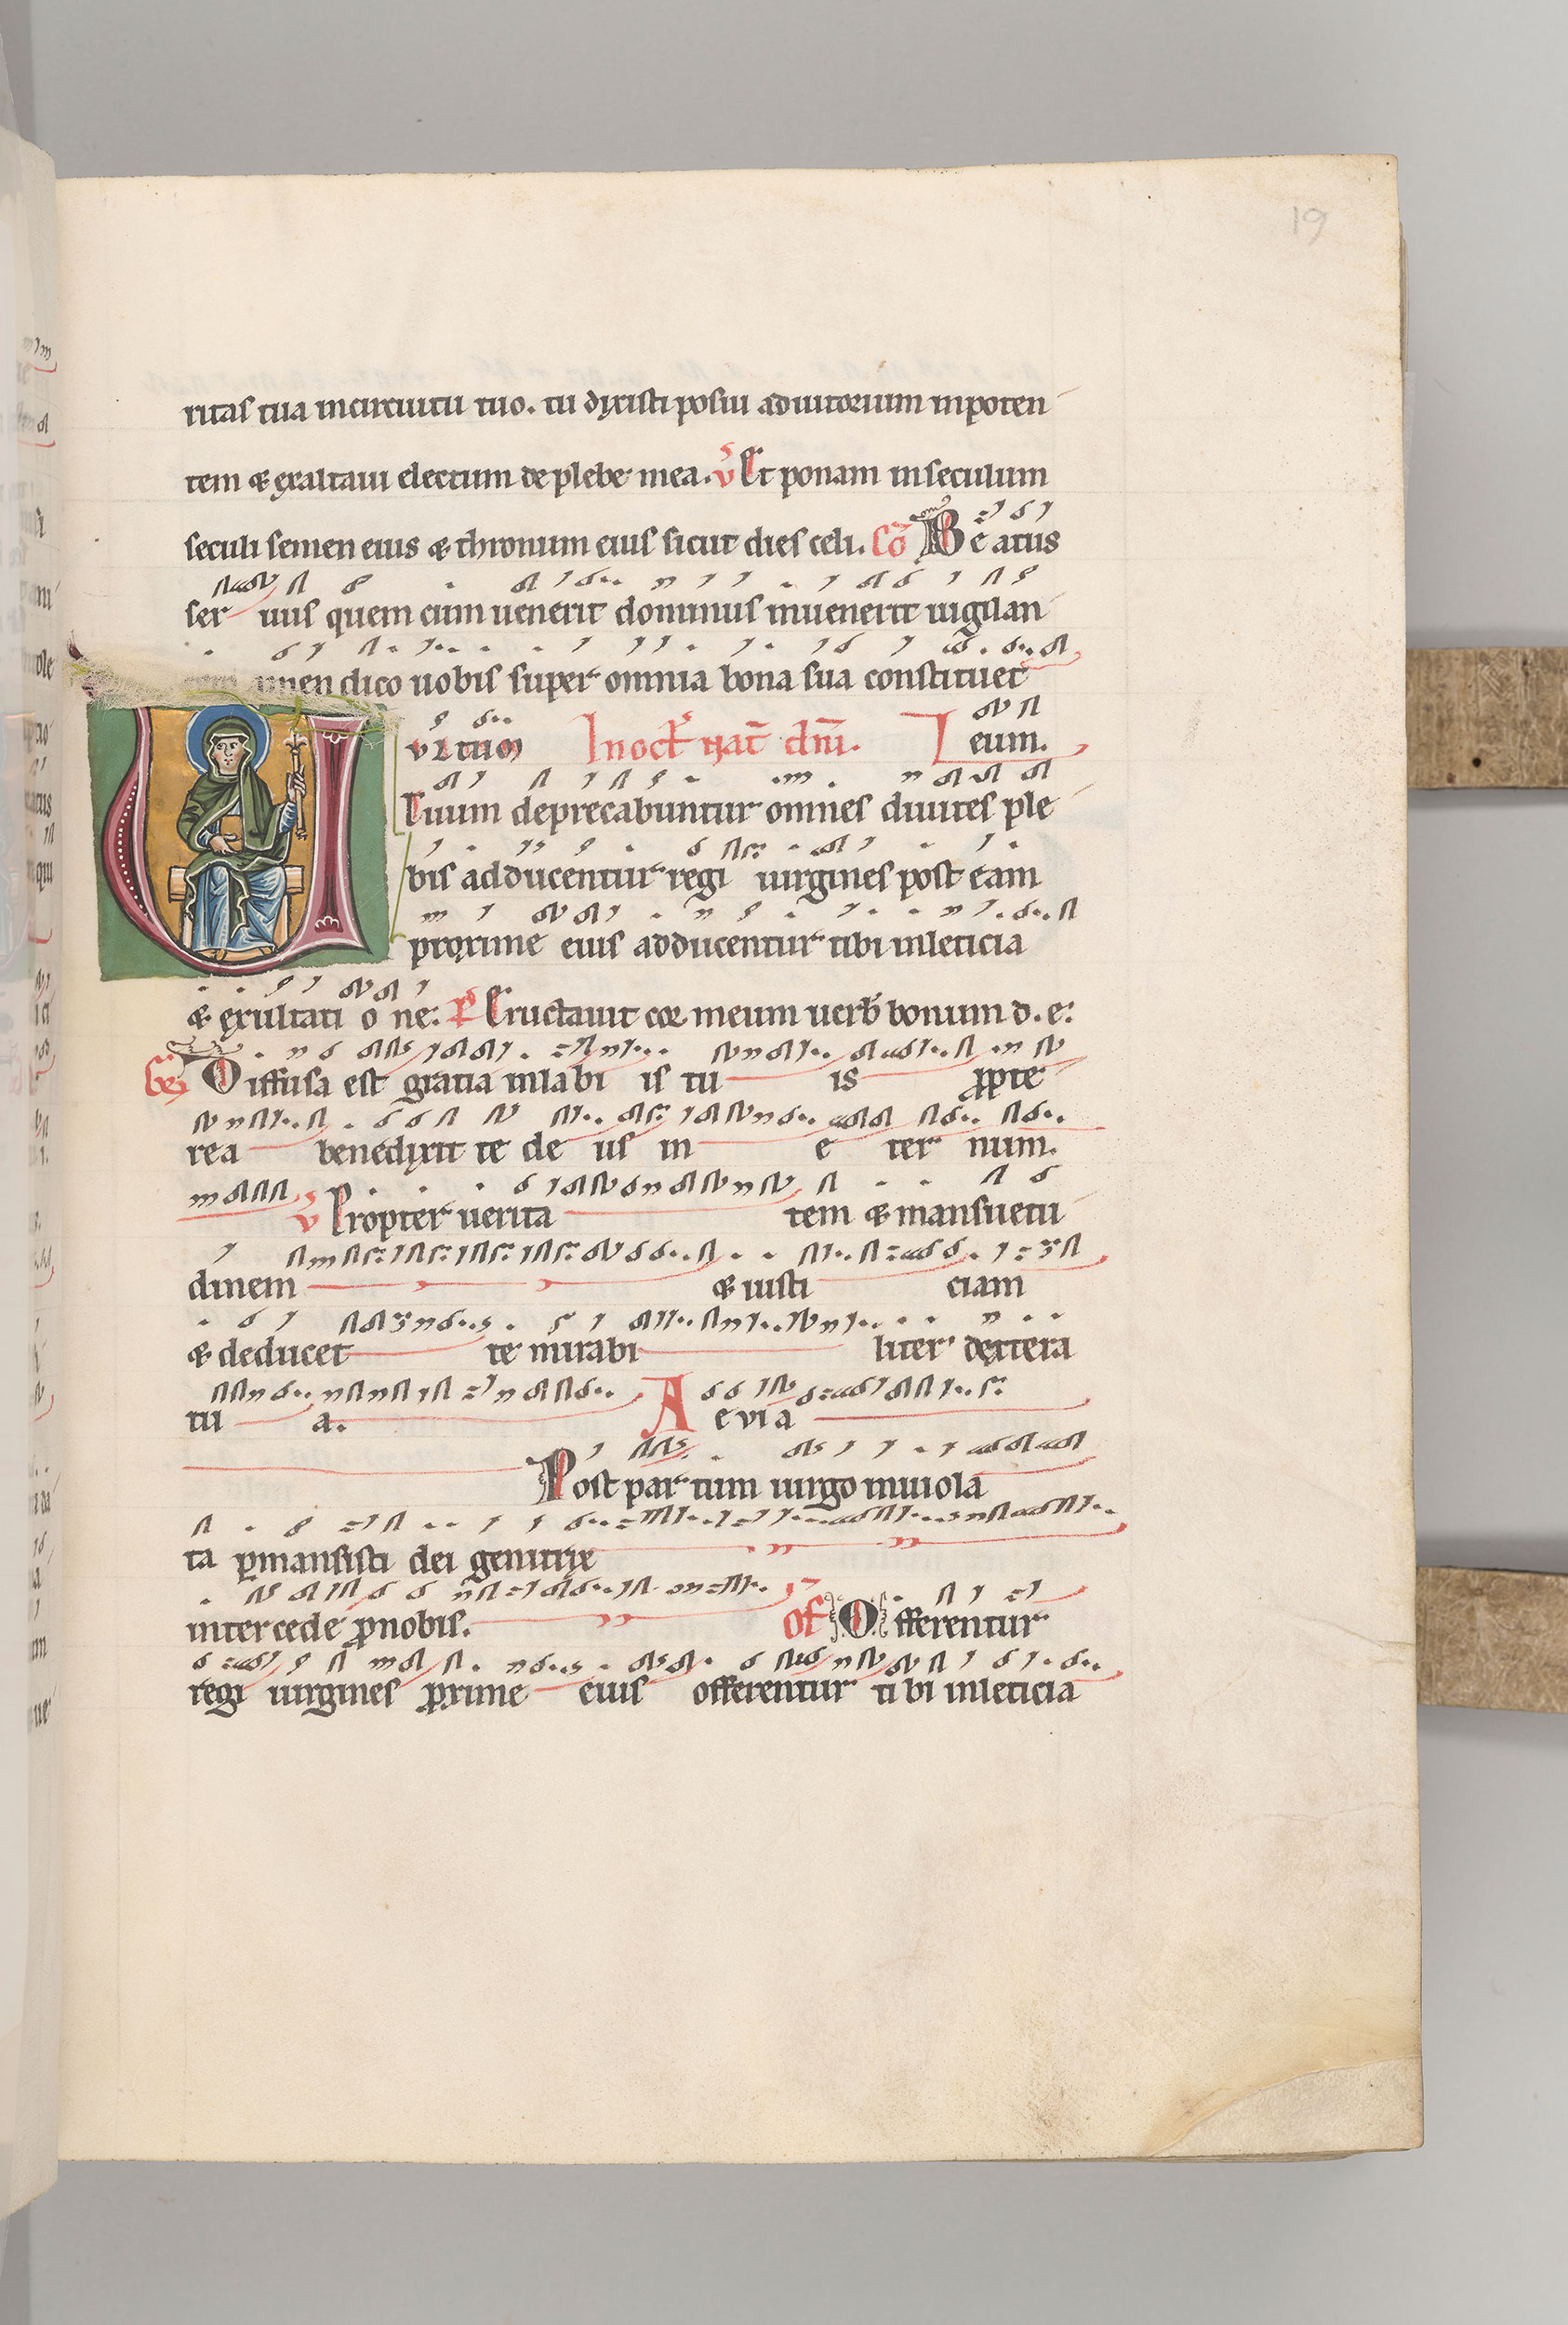 19
ritas tua incircuitu tuo. tu dyxisti posui adiutorium inpoten
tem & exaltaui electum de plebe mea. v̄ Et ponam inseculum
seculi semen eius & thronum eius sicut dies celi. Cō Beatus
ser uus quem cum uenerit dominus inuenerit uigilan
amen dico uobis super omnia bona sua constituet
vltum In oct nat̄ dn̄i. eum.
Tuum deprecabuntur omnes diuites ple
bis adducentur regi uirgines post eam
proxime eius adducentur tibi inleticia
& exultati o ne: Ps Eructauit cor meum uerb̄ bonum d. e:
Gr̄ Diffusa est gratia inlabi is tu is ꝓpte
rea benedyxit te de us in e ter num.
v̄ Propter uerita tem & mansuetu
dinem & iusti ciam
& deducet te mirabi liter dextera
tu a. A e vi a
Post partum uirgo inuiola
ta ꝑmansisti dei genitrix
intercede ꝓnobis. Of Offerentur
regi uirgines ꝓxime eius offerentur ti bi inleticia